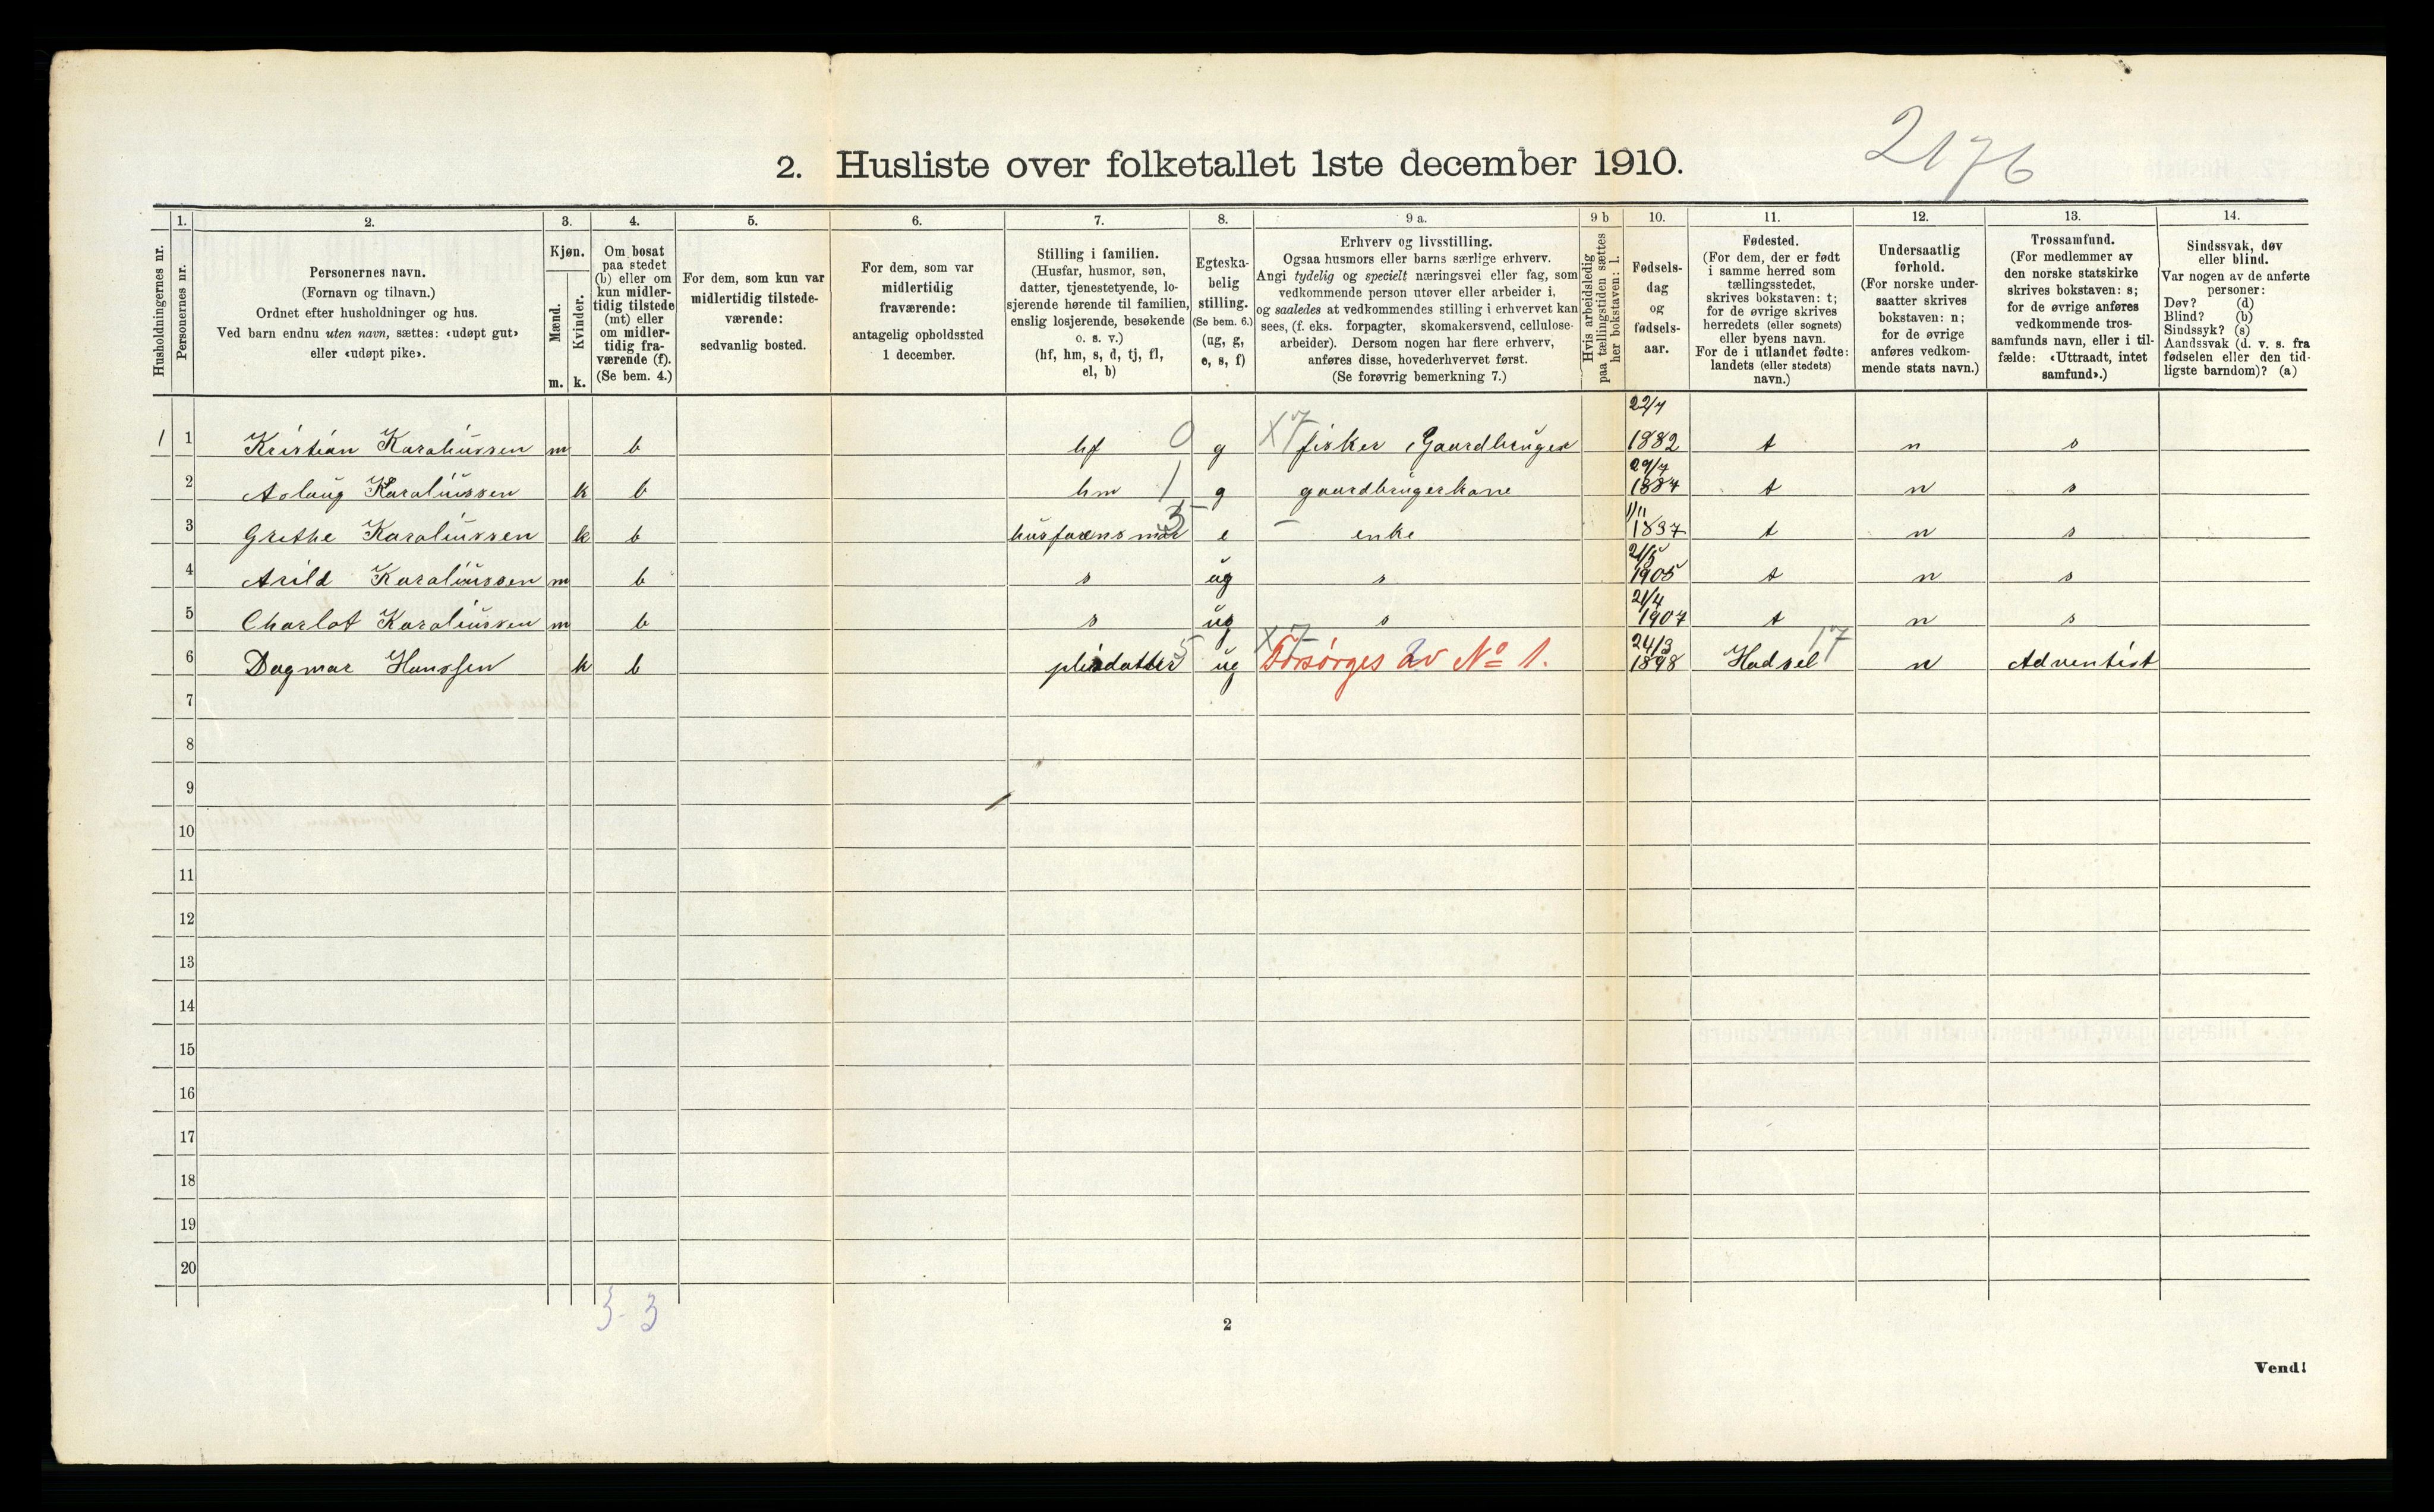 2176
2. Husliste over folketallet 1ste december 1910.
Husholdningernes nr.
1.
Personernes nr.
2.
Personernes navn.
(Fornavn og tilnavn.)
Ordnet efter husholdninger og hus.
Ved barn endnu uten navn, sættes: «udøpt gut»
eller «udøpt pike».
3.
Kjøn.
Mænd.
Kvinder.
m. k.
4.
Om bosat
paa stedet
(b) eller om
kun midler-
tidig tilstede
(mt) eller
om midler-
tidig fra-
værende (f).
(Se bem. 4.)
5.
For dem, som kun var
midlertidig tilstede-
værende:
sedvanlig bosted.
6.
For dem, som var
midlertidig
fraværende:
antagelig opholdssted
1 december.
7.
Stilling i familien.
(Husfar, husmor, søn,
datter, tjenestetyende, lo-
sjerende hørende til familien,
enslig losjerende, besøkende
o. s. v.)
(hf, hm, s, d, tj, fl,
el, b)
8.
Egteska-
belig
stilling.
(Se bem. 6.)
(ug, g,
e, s, f)
9 a.
Erhverv og livsstilling.
Ogsaa husmors eller barns særlige erhverv.
Angi tydelig og specielt næringsvei eller fag, som
vedkommende person utøver eller arbeider i,
og saaledes at vedkommendes stilling i erhvervet kan
sees, (f. eks. forpagter, skomakersvend, cellulose-
arbeider). Dersom nogen har flere erhverv,
anføres disse, hovederhvervet først.
(Se forøvrig bemerkning 7.)
9 b
Hvis arbeidsledig
paa tællingstiden sættes
her bokstaven: l.
10.
Fødsels-
dag
og
fødsels-
aar.
11.
Fødested.
(For dem, der er født
i samme herred som
tællingsstedet,
skrives bokstaven: t;
for de øvrige skrives
herredets (eller sognets)
eller byens navn.
For de i utlandet fødte:
landets (eller stedets)
navn.)
12.
Undersaatlig
forhold.
(For norske under-
saatter skrives
bokstaven: n;
for de øvrige
anføres vedkom-
mende stats navn.)
13.
Trossamfund.
(For medlemmer av
den norske statskirke
skrives bokstaven: s;
for de øvrige anføres
vedkommende tros-
samfunds navn, eller i til-
fælde: «Uttraadt, intet
samfund».)
14.
Sindssvak, døv
eller blind.
Var nogen av de anførte
personer:
Døv? (d)
Blind? (b)
Sindssyk? (s)
Aandssvak (d. v. s. fra
fødselen eller den tid-
ligste barndom)? (a)
1 1 Kristian Karoliussen m b hf 0 g X7 fisker, Gaardbruger 22/7 1882 t n s
2 Aslaug Karoliussen k b hm 1 g gaardbrugerkone 29/7 1884 t n s
3 Grethe Karoliussen k b husfarens mor 3 e - enke 1/11 1837 t n s
4 Arild Karoliussen m b s ug s 21/5 1905 t n s
5 Charlot Karoliussen m b s ug s 21/4 1907 t n s
6 Dagmar Hanssen k b pleiedatter 5 ug X7 Forsørges av No 1. 24/3 1898 Hadsel 17 n Adventist
7
8
9
10
11
12
13
14
15
16
17
18
19
20
3-3
2
Vend!